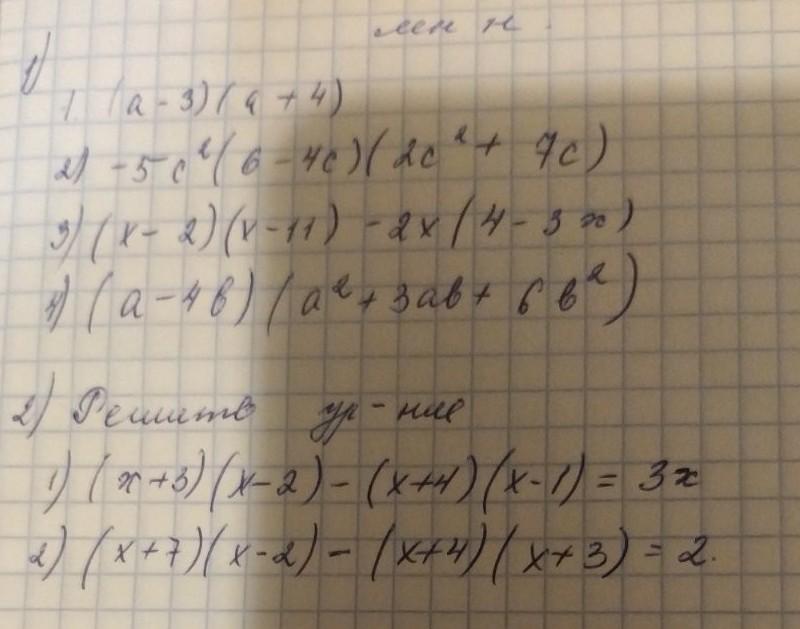 мн н.
1)
1. (a - 3)(a + 4)
2) -5c²(6 - 4c)(2c² + 7c)
3) (x - 2)(x - 11) - 2x(4 - 3x)
4) (a - 4b)(a² + 3ab + 6b²)
2) Решить ур-ние
1) (x+3)(x-2) - (x+4)(x-1) = 3x
2) (x+7)(x-2) - (x+4)(x+3) = 2.